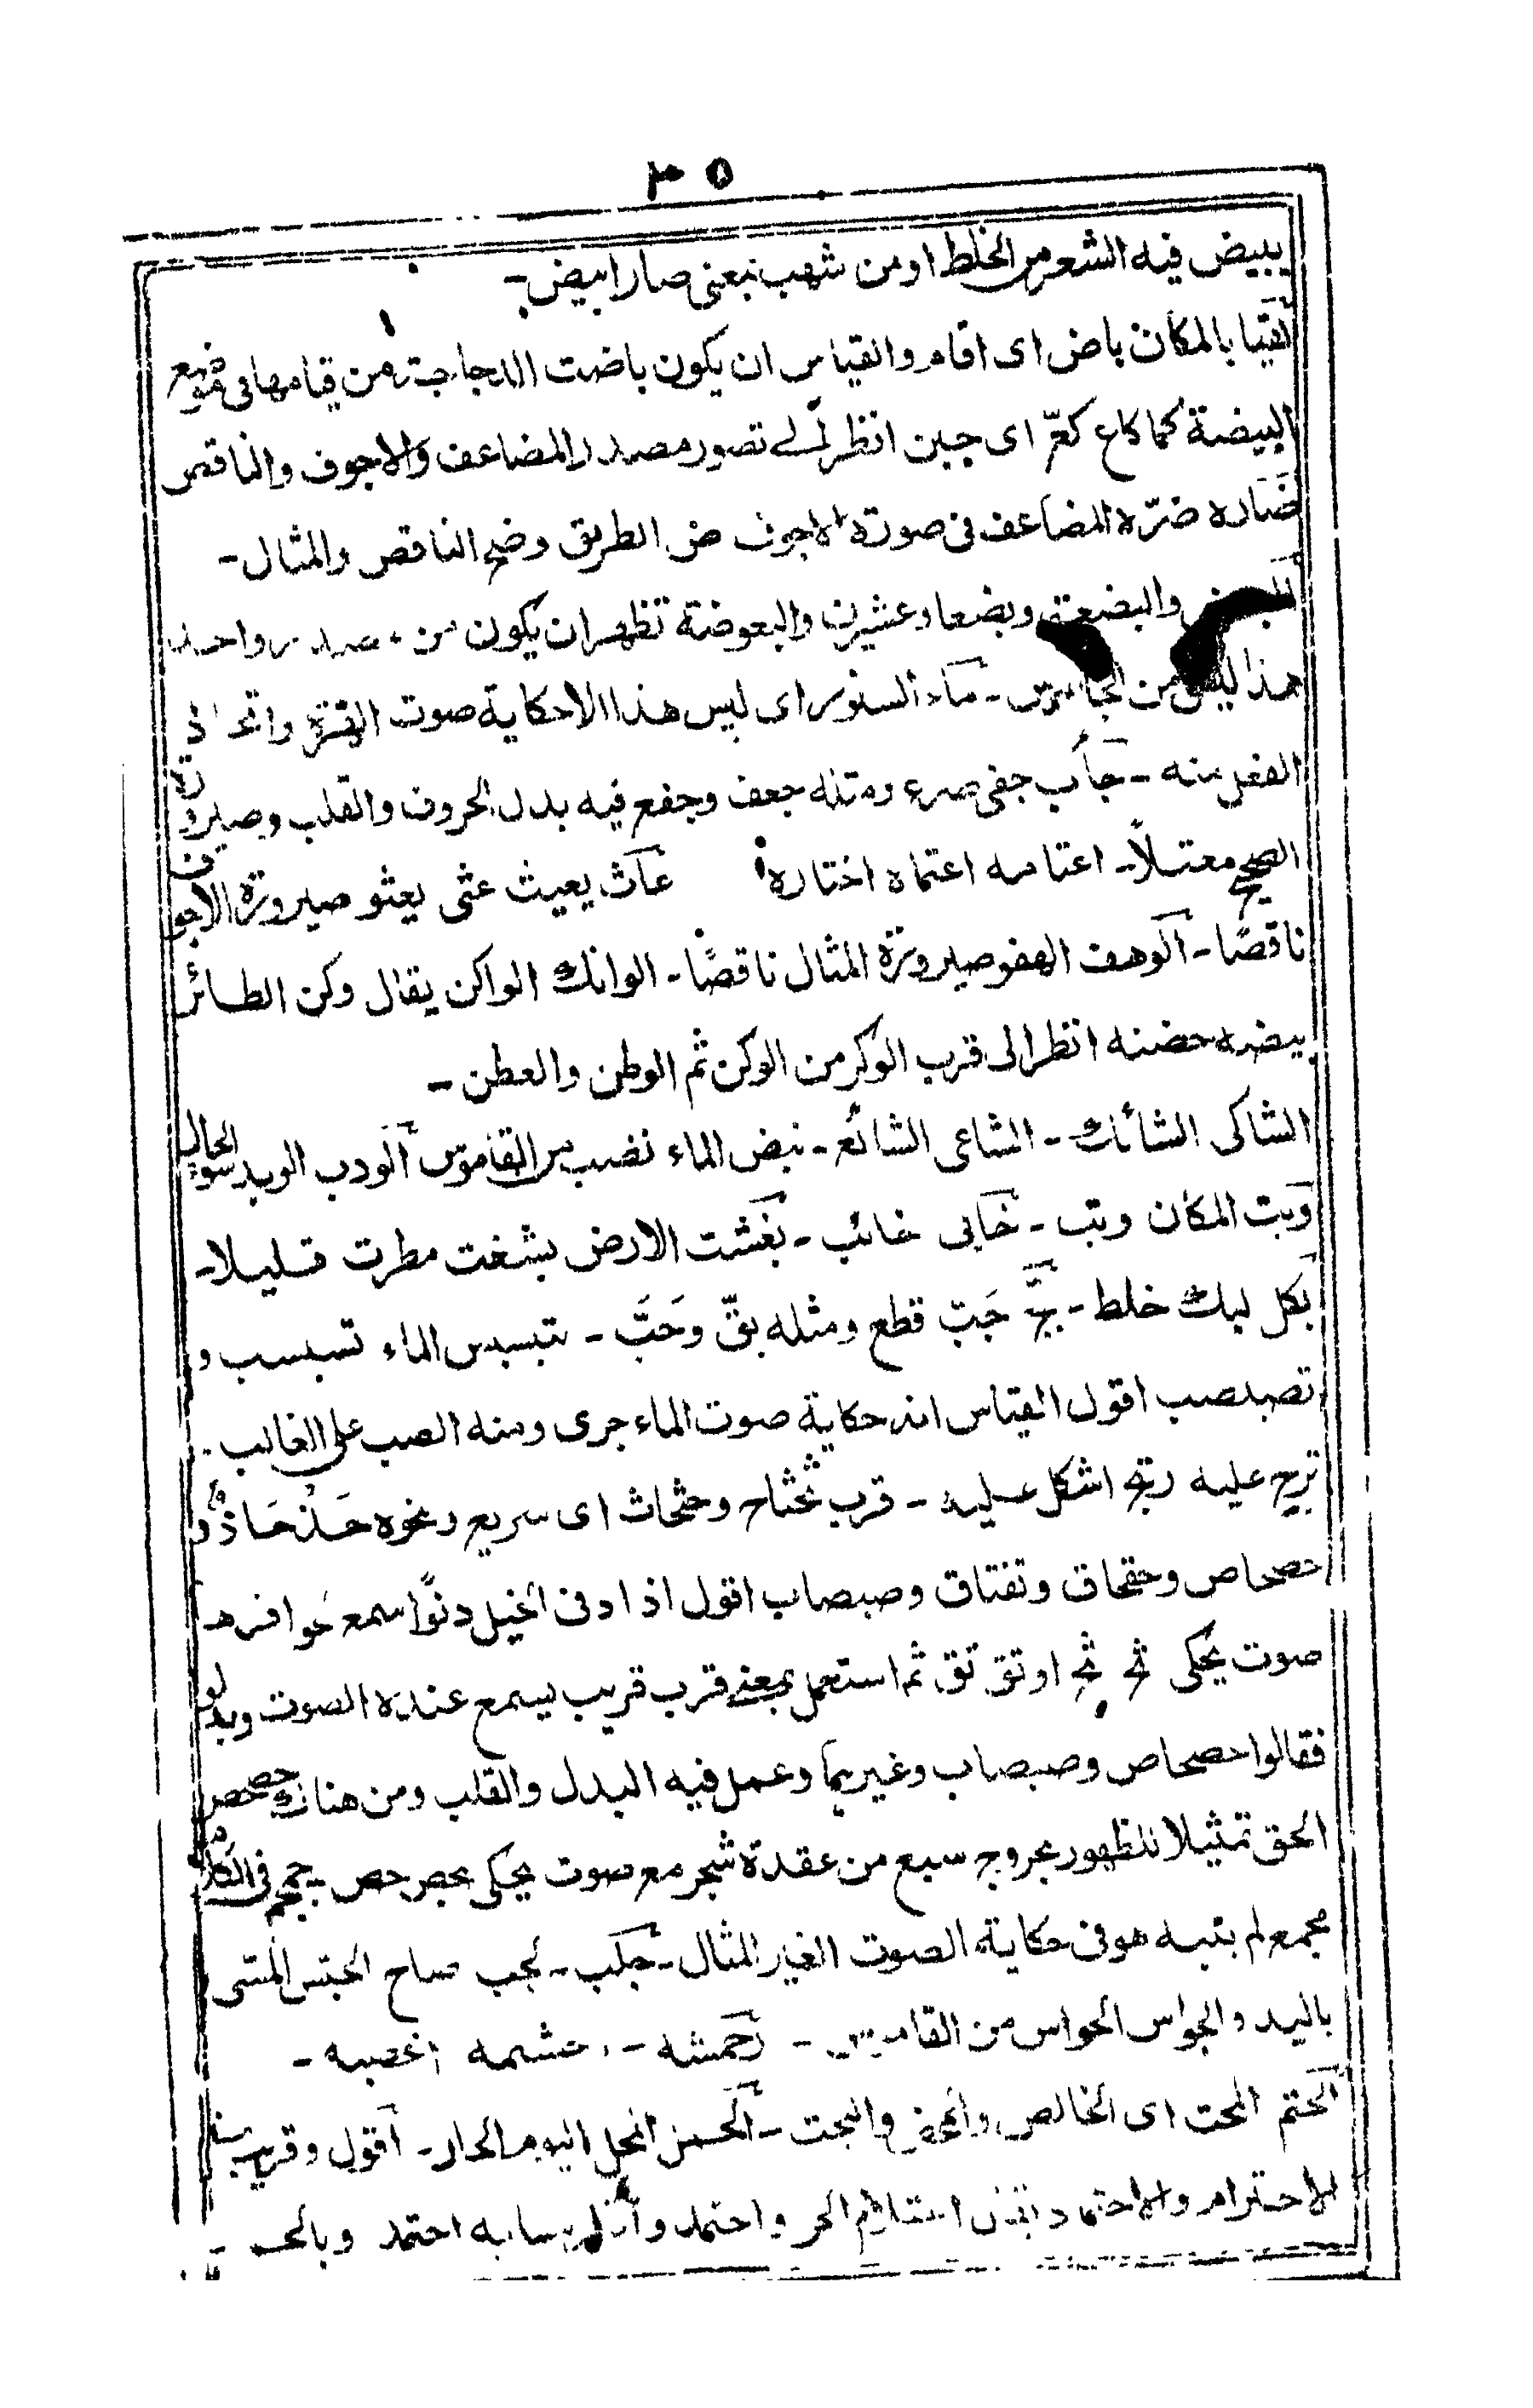 ٣٥
يبيض فيه الشعر من الخلط او من شهب بمعنى صار ابيض -
بالمكان باض اى اقام والقياس ان يكون باضت الدجاجة من قيامها فى موضع
البيضة كما كاع كعّ اى جبن انظر الى تصور مصدر المضاعف والاجوف والناقص
ضاره ضرّه المضاعف فى صورة الاجوف ض الطريق وضح الناقص والمثال -
والبضعة وبضعا وعشرين والبعوضة تظهر ان يكون من مصدر واحد
هذا ليس من - ماء السنور اى ليس هذا الا حكاية صوت الهرة واتخاذ
الفعل منه - جأب جفى صرع ومثله جعف وجفع فيه بدل الحروف والقلب وصيرورة
الصحيح معتلاً - اعتامه اعتماه اختاره عاث يعيث عثى يعثو صيرورة الاجوف
ناقصًا - الوهف الهفو صيرورة المثال ناقصًا - الوانك الواكن يقال وكن الطائر
بيضه حضنه انظر الى قرب الوكر من الوكن ثم الوطن والعطن -
الشاكى الشائك - الشاعى الشائع - نبض الماء نضب من القاموس الودب الوبد سوء الحال
وبت المكان وتب - خابى خائب - بغشت الارض بشغت مطرت قليلا -
بكل لبك خلط - جَبّ قطع ومثله بقّ وحَتَّ - تبسبس الماء تسبسب و
تصبصب اقول القياس انه حكاية صوت الماء جرى ومنه الصب على الغالب -
عليه رتج اشكل عليه - قرب ثحثاح وحثحاث اى سريع ونحوه حَذحَاذ و
حصحاص وحقحاق وتقتاق وصبصاب اقول اذا دنى الخيل دنوًّا سمع حوافرها
صوت يحكى ثح ثح او تق تق ثم استعمل بمعنى قرب قريب يسمع عنده الصوت وبدلو
فقالوا حصحاص وصبصاب وغيرهما وعمل فيه البدل والقلب ومن هناك حصحص
الحق تمثيلا للظهور بخروج سبع من عقدة شجر مع صوت يحكى بحص حص - جمجم فى الكلام
مجمع لم يبينه هو فى حكاية الصوت الغير المثال - جبلب - لجب صاح الجبس المسى
باليد والجواس الحواس من القاموس - حمشه - حشمه اغضبه -
الحتم المحت اى الخالص والمحض والبحت - اليوم الحار - اقول وقريب منه
الاحترام والاحتماد الحر واحتمد احتمد وبالحـ